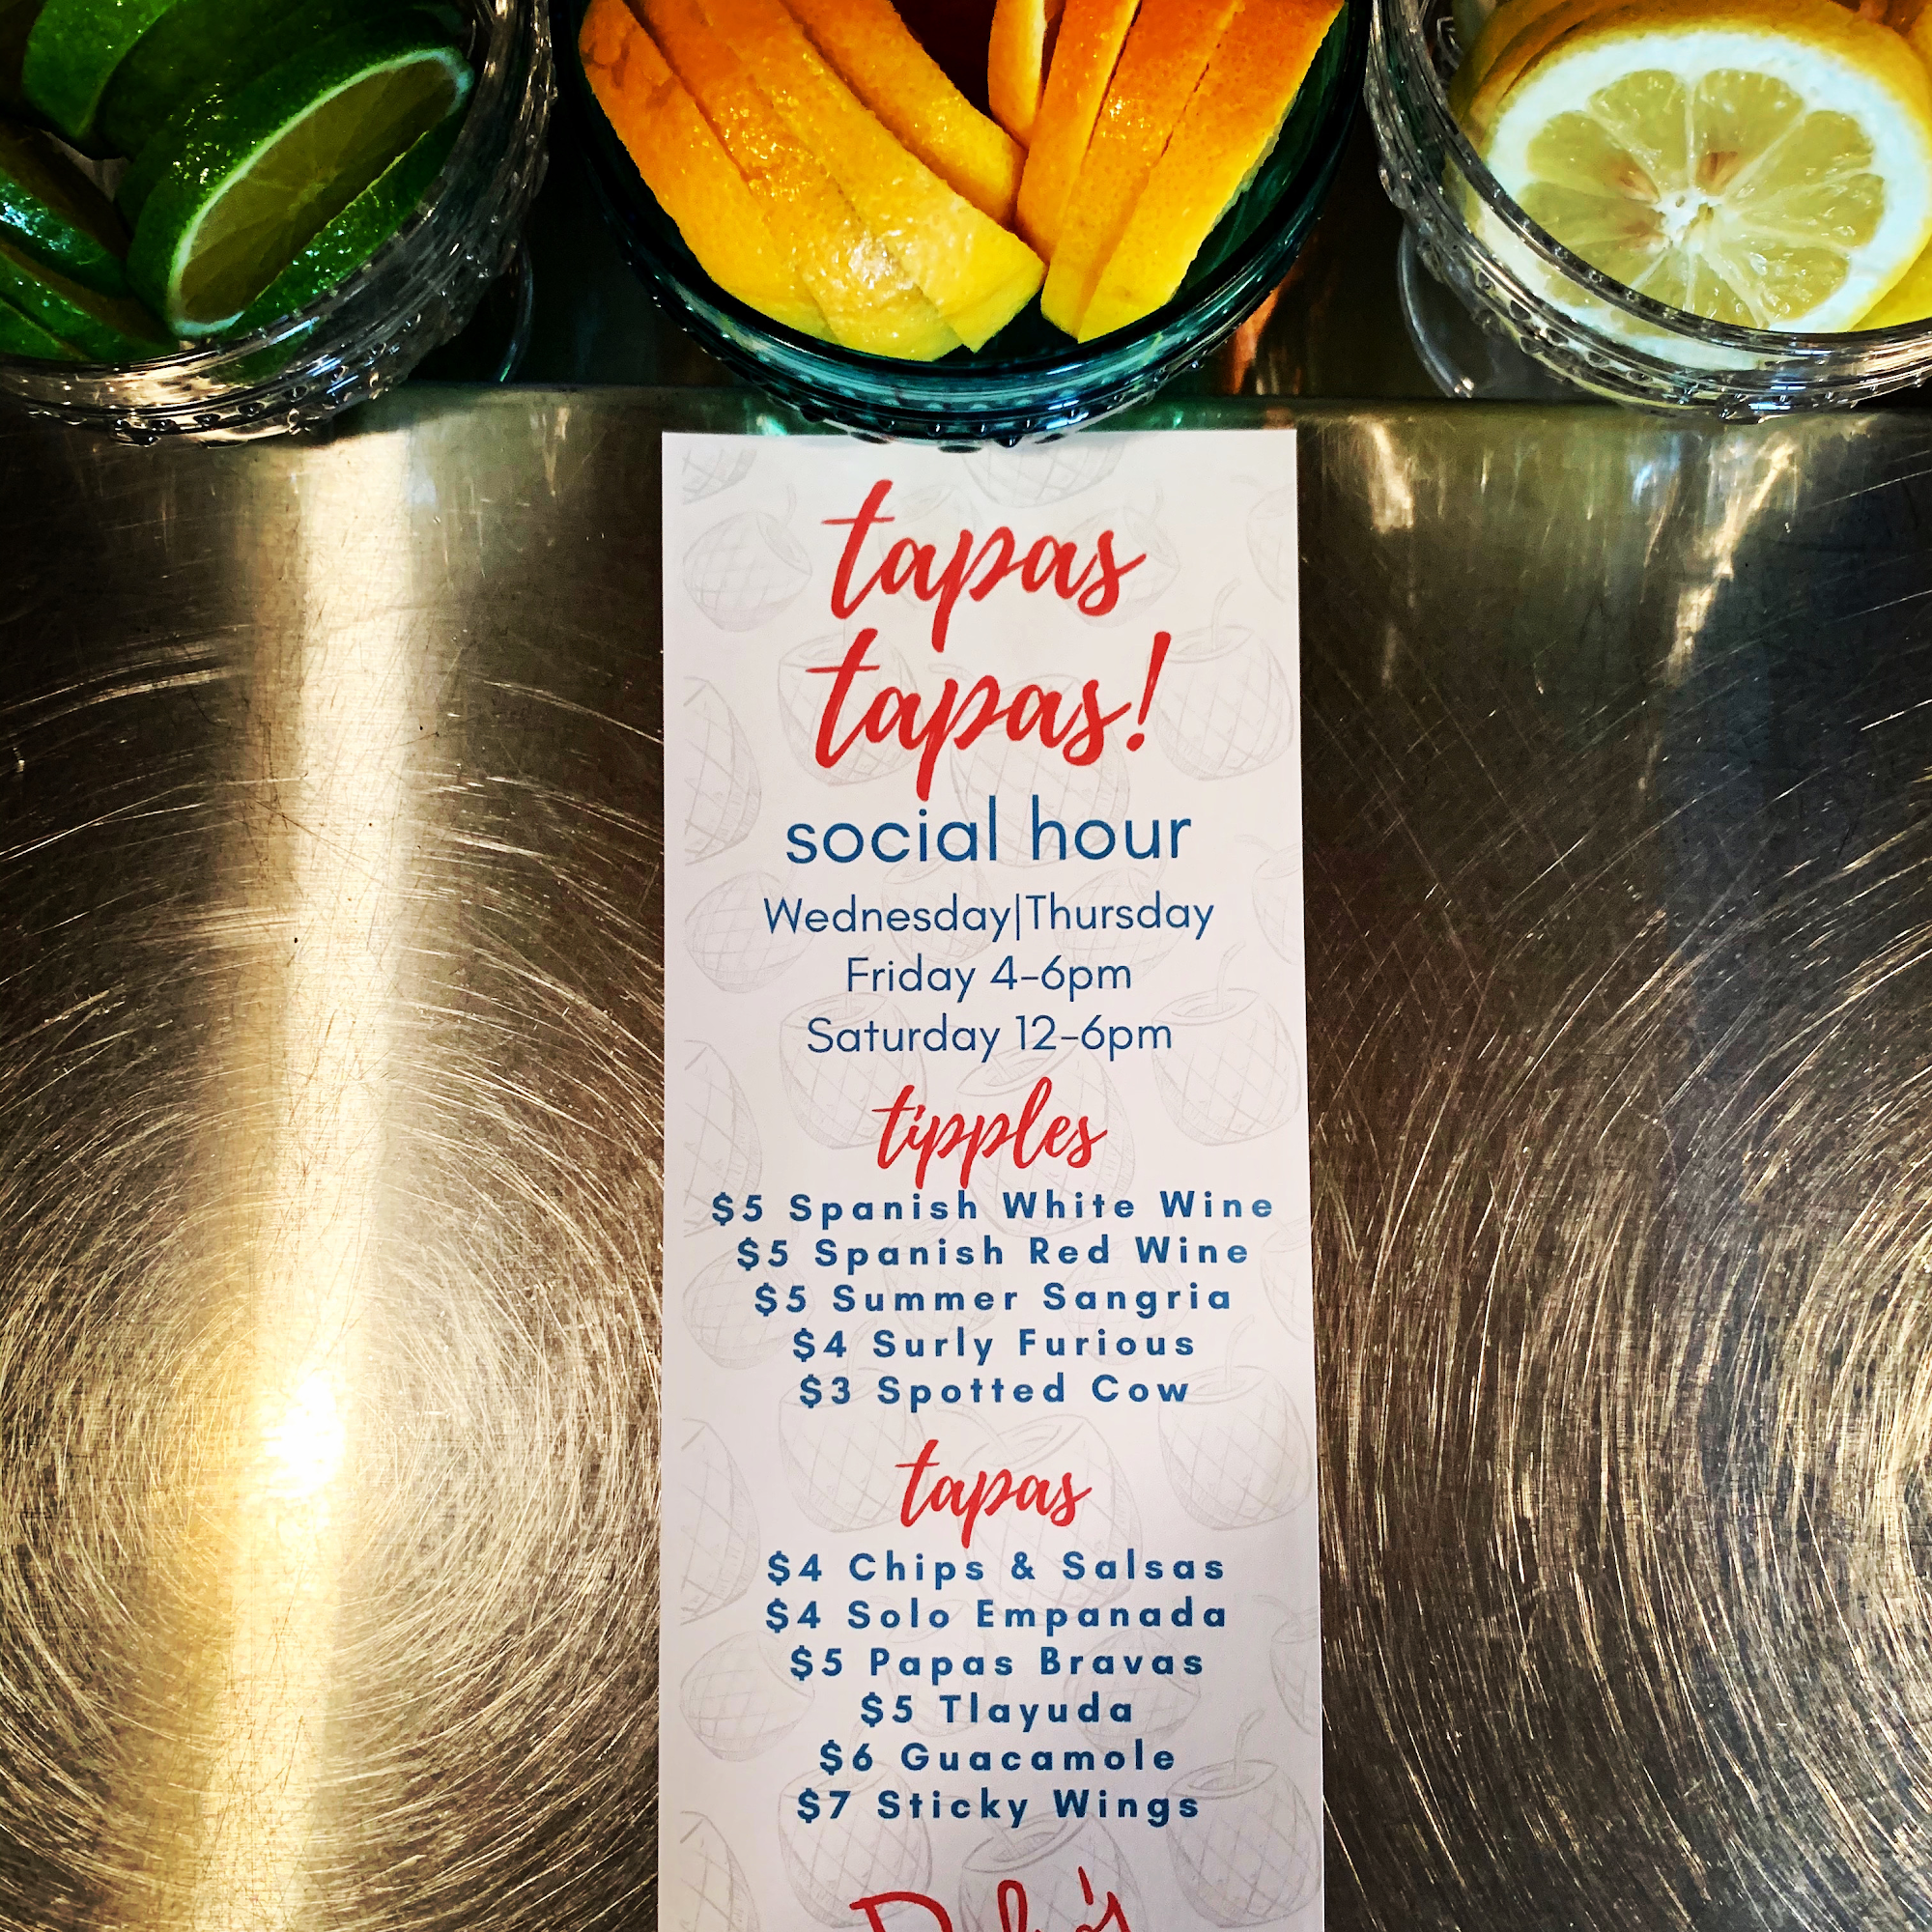 tapas
tapas!
social hour
Wednesday|Thursday
Friday 4-6pm
Saturday 12-6pm
tipples
$5 Spanish White Wine
$5 Spanish Red Wine
$5 Summer Sangria
$4 Surly Furious
$3 Spotted Cow
tapas
$4 Chips & Salsas
$4 Solo Empanada
$5 Papas Bravas
$5 Tlayuda
$6 Guacamole
$7 Sticky Wings